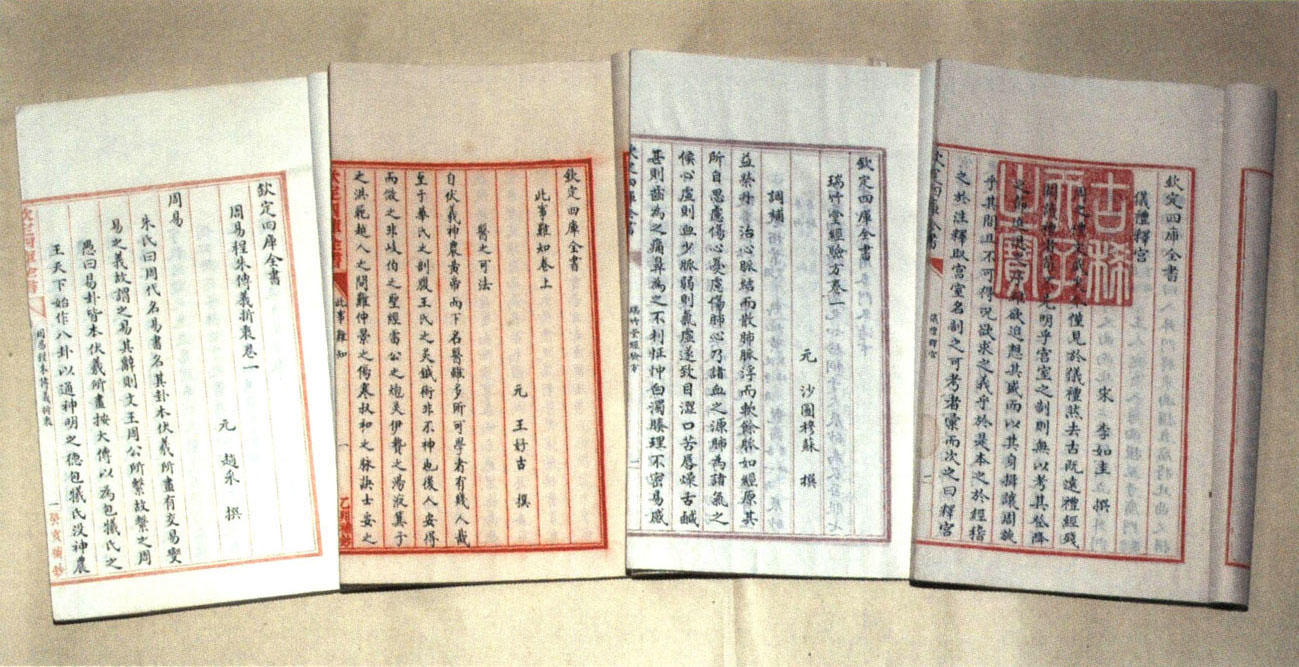 欽定四庫全書
周易程朱傳義折衷卷一
元 趙采 撰
周易
朱氏曰周代名易書名其卦本伏羲所畫有交易變
易之義故謂之易其辭則文王周公所繫故繫之周
愚曰易卦皆本伏羲所畫按大傳以為包犧氏之
王天下始作八卦以通神明之德包犧氏沒神農
欽定四庫全書 周易程朱傳義折衷 一 癸亥補抄
欽定四庫全書
此事難知卷上
元 王好古 撰
醫之可法
自伏羲神農黃帝而下名醫雖多所可學者有幾人哉
至于華氏之剖腹王氏之灸鍼術非不神也後人安得
而倣之非岐伯之聖經雷公之炮炙伊贄之湯液箕子
之洪範越人之問難仲景之傷寒叔和之脉訣士安之
欽定四庫全書 此事難知 一
欽定四庫全書
瑞竹堂經驗方卷一
元 沙圖穆蘇 撰
調補
益榮丹 治心脈結而散肺脈浮而軟餘脈如經原其
所自思慮傷心憂慮傷肺心乃諸血之源肺為諸氣之
候心虛則血少脈弱則氣虛遂致目澀口苦唇燥舌鹹
甚則齒為之痛鼻為之不利怔忡白濁腠理不密易感
欽定四庫全書 瑞竹堂經驗方
欽定四庫全書
儀禮釋宮
宋 李如圭 撰
周之禮文盛矣今僅見於儀禮然去古既遠禮經殘
闕讀禮者苟不先明乎宮室之制則無以考其登降
之節進退之序雖欲追想其盛而以其身揖讓周旋
乎其間且不可得況欲求之義乎於是本之於經稽
之於注釋取宮室名制之可考者彙而次之曰釋宮
欽定四庫全書 儀禮釋宮
古稀
天子
之寶